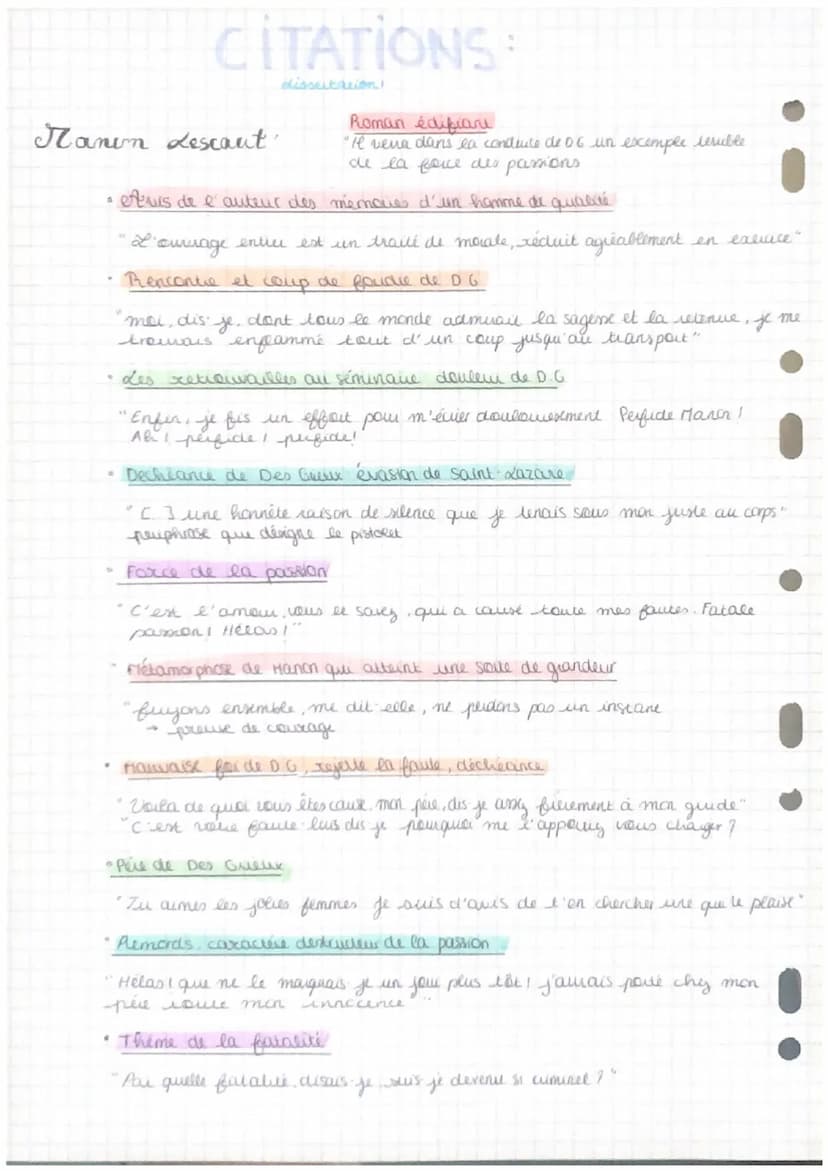 CITATIONS:
dissertation!
Roman édifiant
Manon Lescaut
"Il verra dans la conduite de DG un exemple terrible
de la force des passions
• Avis de l'auteur des mémoires d'un homme de qualité
"L'ouvrage entier est un traité de morale, réduit agréablement en exercice"
• Rencontre et coup de foudre de DG
"moi, dis-je, dont tous le monde admirait la sagesse et la retenue, je me
trouvais enflammé tout d'un coup jusqu'au transport"
• Les retrouvailles au séminaire douleur de D.G
"Enfin, je fis un effort pour m'écrier douloureusement Perfide Manon!
Ah! perfide! perfide!
• Déchéance de Des Grieux évasion de Saint-Lazare
"[.] une honnête raison de silence que je tenais sous mon juste au corps"
périphrase qui désigne le pistolet
• Force de la passion
"C'est l'amour, vous le savez, qui a causé toute mes fautes. Fatale
passion! Hélas!"
• Métamorphose de Manon qui atteint une sorte de grandeur
"fuyons ensemble, me dit-elle, ne perdons pas un instant
→ preuve de courage
• Mauvaise foi de DG, rejette la faute, déchéance
"Voilà de quoi vous êtes cause, mon père, dis-je assez fièrement à mon guide"
"C'est votre faute luis dis je pourquoi me l'apportiez vous chargé?
• Père de Des Grieux
"Tu aimes les jolies femmes je suis d'avis de t'en chercher une que te plaise"
• Remords, caractère destructeur de la passion
"Hélas! que ne le marquais je un jour plus tôt! j'aurais porté chez mon
père toute mon innocence"
• Thème de la fatalité
"Par quelle fatalité, disais-je, suis-je devenu si criminel?"